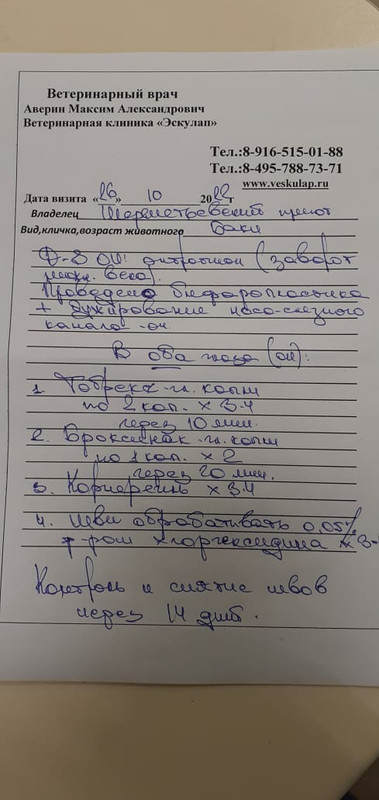 Ветеринарный врач
Аверин Максим Александрович
Ветеринарная клиника «Эскулап»
Тел.:8-916-515-01-88
Тел.:8-495-788-73-71
www.veskulap.ru
Дата визита «26» 10 2022 г
Владелец Шереметьевский приют
Вид,кличка,возраст животного Баки
Д-З OU: энтропион (заворот
нижн. века).
Проведена блефаропластика
+ бужирование носо-слезного
канала -ou
В оба глаза (ou):
1. Тобрекс-гл. капли
по 2 кап. х 3-4
через 10 мин.
2. Броксинак-гл. капли
по 1 кап. х 2
через 20 мин.
3. Корнерегель х 3-4
4. Швы обрабатывать 0,05%
р-ром хлоргексидина х 3-
Контроль и снятие швов
через 14 дней.